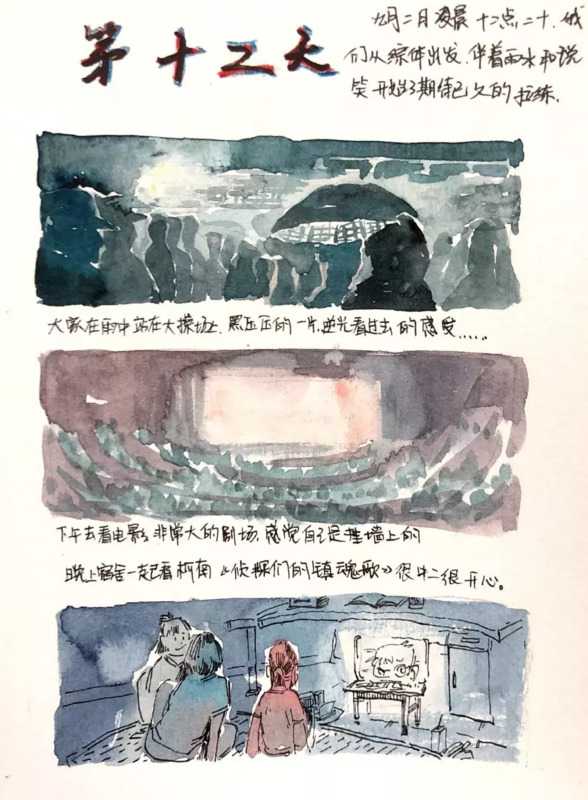 第十二天
九月二日凌晨十二点二十,我
们从综体出发.伴着雨水和说
笑开始了期待已久的拉练.
大家在雨中站在大操场上.黑压压的一片.逆光看过去的感觉......
下午去看电影.非常大的剧场.感觉自己是挂墙上的
晚上宿舍一起看柯南《侦探们的镇魂歌》很中二很开心。